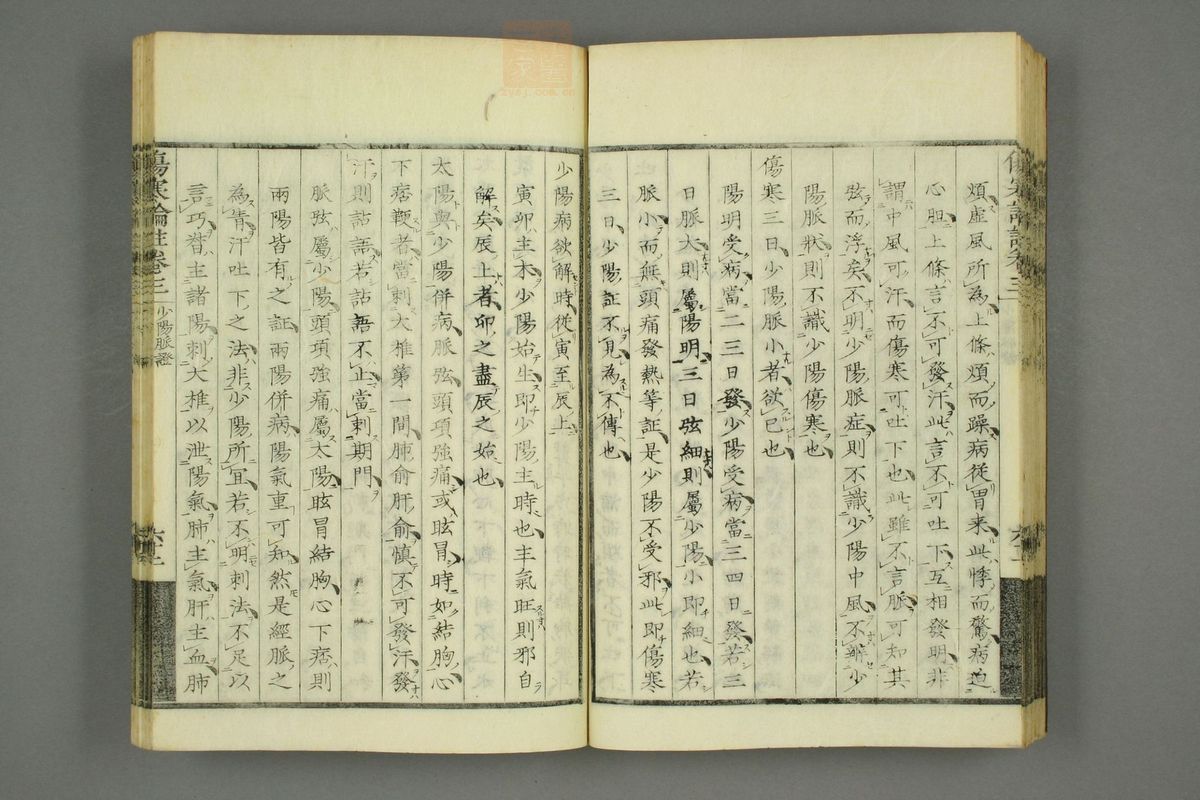 煩虛風所為上條煩而躁病從胃来此悸而驚病迫
心胆上條言不可發汗此言不可吐下互相發明非
謂中風可汗而傷寒可吐下也此雖不言脈可知其
弦而浮矣不明少陽脈症則不識少陽中風不解少
陽脈狀則不識少陽傷寒也
傷寒三日少陽脈小者欲已也
陽明受病當二三日發少陽受病當三四日發若三
日脈大則屬陽明三日弦細則屬少陽小即細也若
脈小而無頭痛發熱等証是少陽不受邪此即傷寒
三日少陽証不見為不傳也
少陽病欲解時從寅至辰上
寅卯主木少陽始生即少陽主時也主氣旺則邪自
解矣辰上者卯之盡辰之始也
太陽與少陽併病脈弦頭項強痛或眩冒時如結胸心
下痞鞕者當刺大椎第一間肺俞肝俞慎不可發汗發
汗則譫語若譫語不止當刺期門
脈弦屬少陽頭項強痛屬太陽眩冒結胸心下痞則
兩陽皆有之証兩陽併病陽氣重可知然是經脈之
為眚汗吐下之法非少陽所宜若不明刺法不足以
言巧督主諸陽刺大椎以泄陽氣肺主氣肝主血肺
傷寒論註卷三
少陽脈證
zysj.com.cn